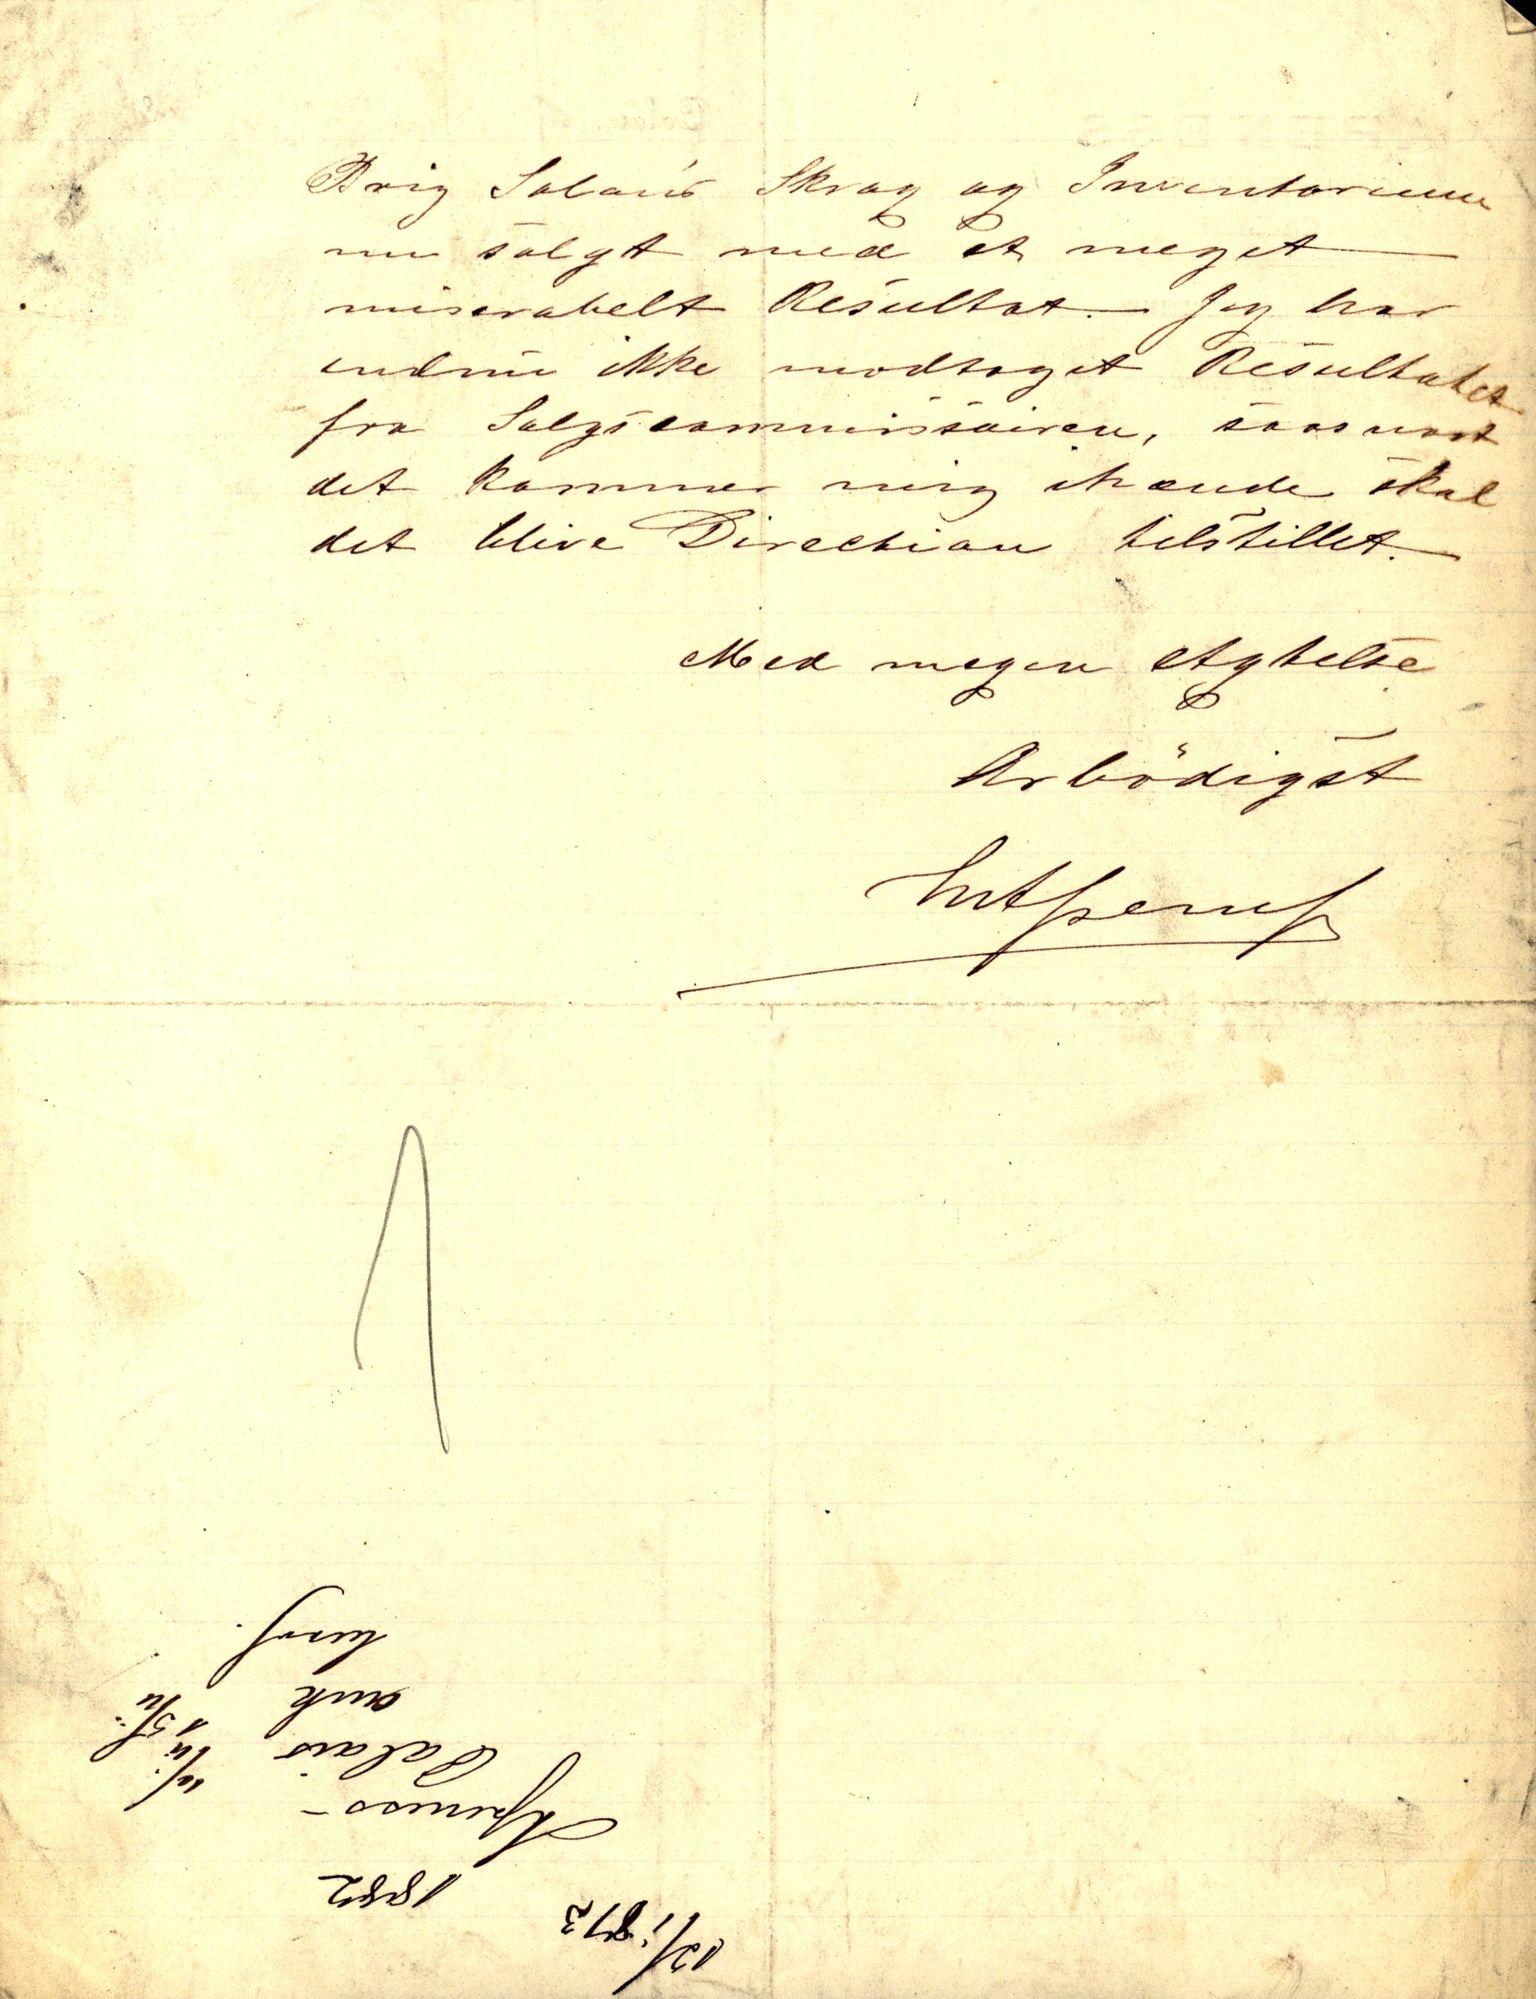 Brig Solous Skrog og Inventorium
nu solgt med et meget
miserabelt Resultat. — Jeg har
endnu ikke modtaget Resultatet
fra Salgscommissairen, saasnart
det kommer mig ihænde skal
det blive Direction tilstillet. —
Med megen Agtelse
Ærbödigst
12/1 87 3
1882
Apenæs -
Palais
ank